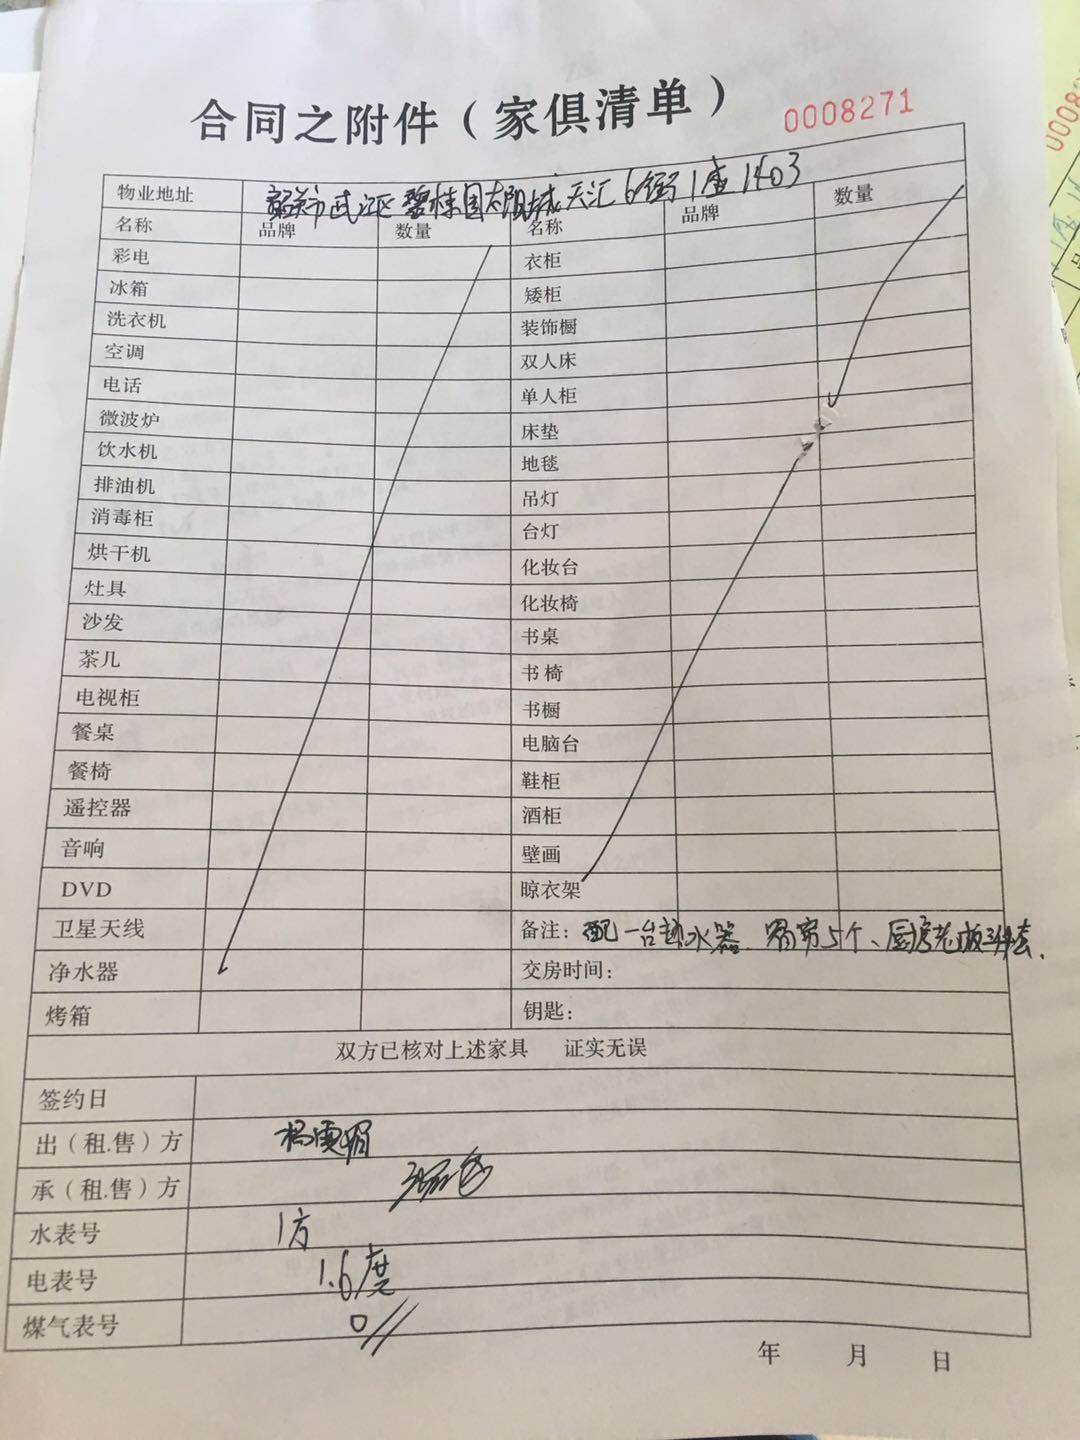 合同之附件（家俱清单）
0008271
物业地址 韶关市武江区碧桂园太阳城天汇6街1座1403
名称 品牌 数量 名称 品牌 数量
彩电 衣柜
冰箱 矮柜
洗衣机 装饰橱
空调 双人床
电话 单人柜
微波炉 床垫
饮水机 地毯
排油机 吊灯
消毒柜 台灯
烘干机 化妆台
灶具 化妆椅
沙发 书桌
茶几 书椅
电视柜 书橱
餐桌 电脑台
餐椅 鞋柜
遥控器 酒柜
音响 壁画
DVD 晾衣架
卫星天线 备注：配一台热水器、窗帘5个、厨房老板三件套.
净水器 交房时间：
烤箱 钥匙：
双方已核对上述家具 证实无误
签约日
出（租.售）方
承（租.售）方
水表号 1方
电表号 1.6度
煤气表号 0//
年 月 日